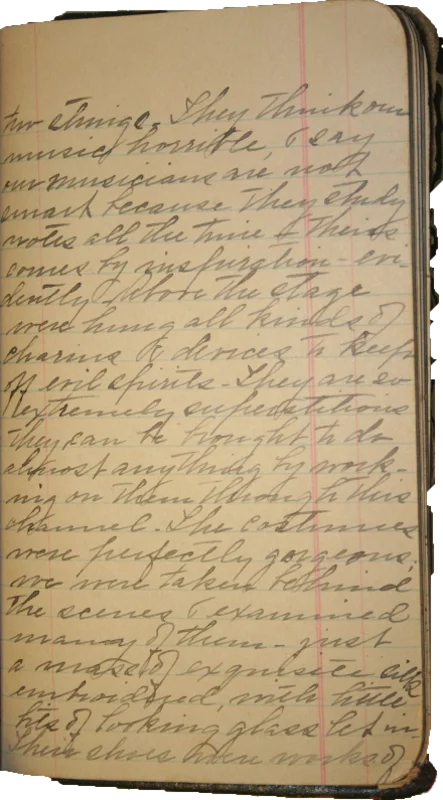 two strings. They think our
music horrible, & say
our musicians are not
smart because they study
notes all the time & theirs
comes by inspiration - evi-
dently. Above the stage
were hung all kinds of
charms & devices to keep
off evil spirits - They are so
extremely superstitious
they can be brought to do
almost anything by work-
ing on them through this
channel. The costumes
were perfectly gorgeous.
we were taken behind
the scenes & examined
many of them - just
a mass of exquisite silks
embroidered, with little
bits of looking glass let in.
Their shoes were works of